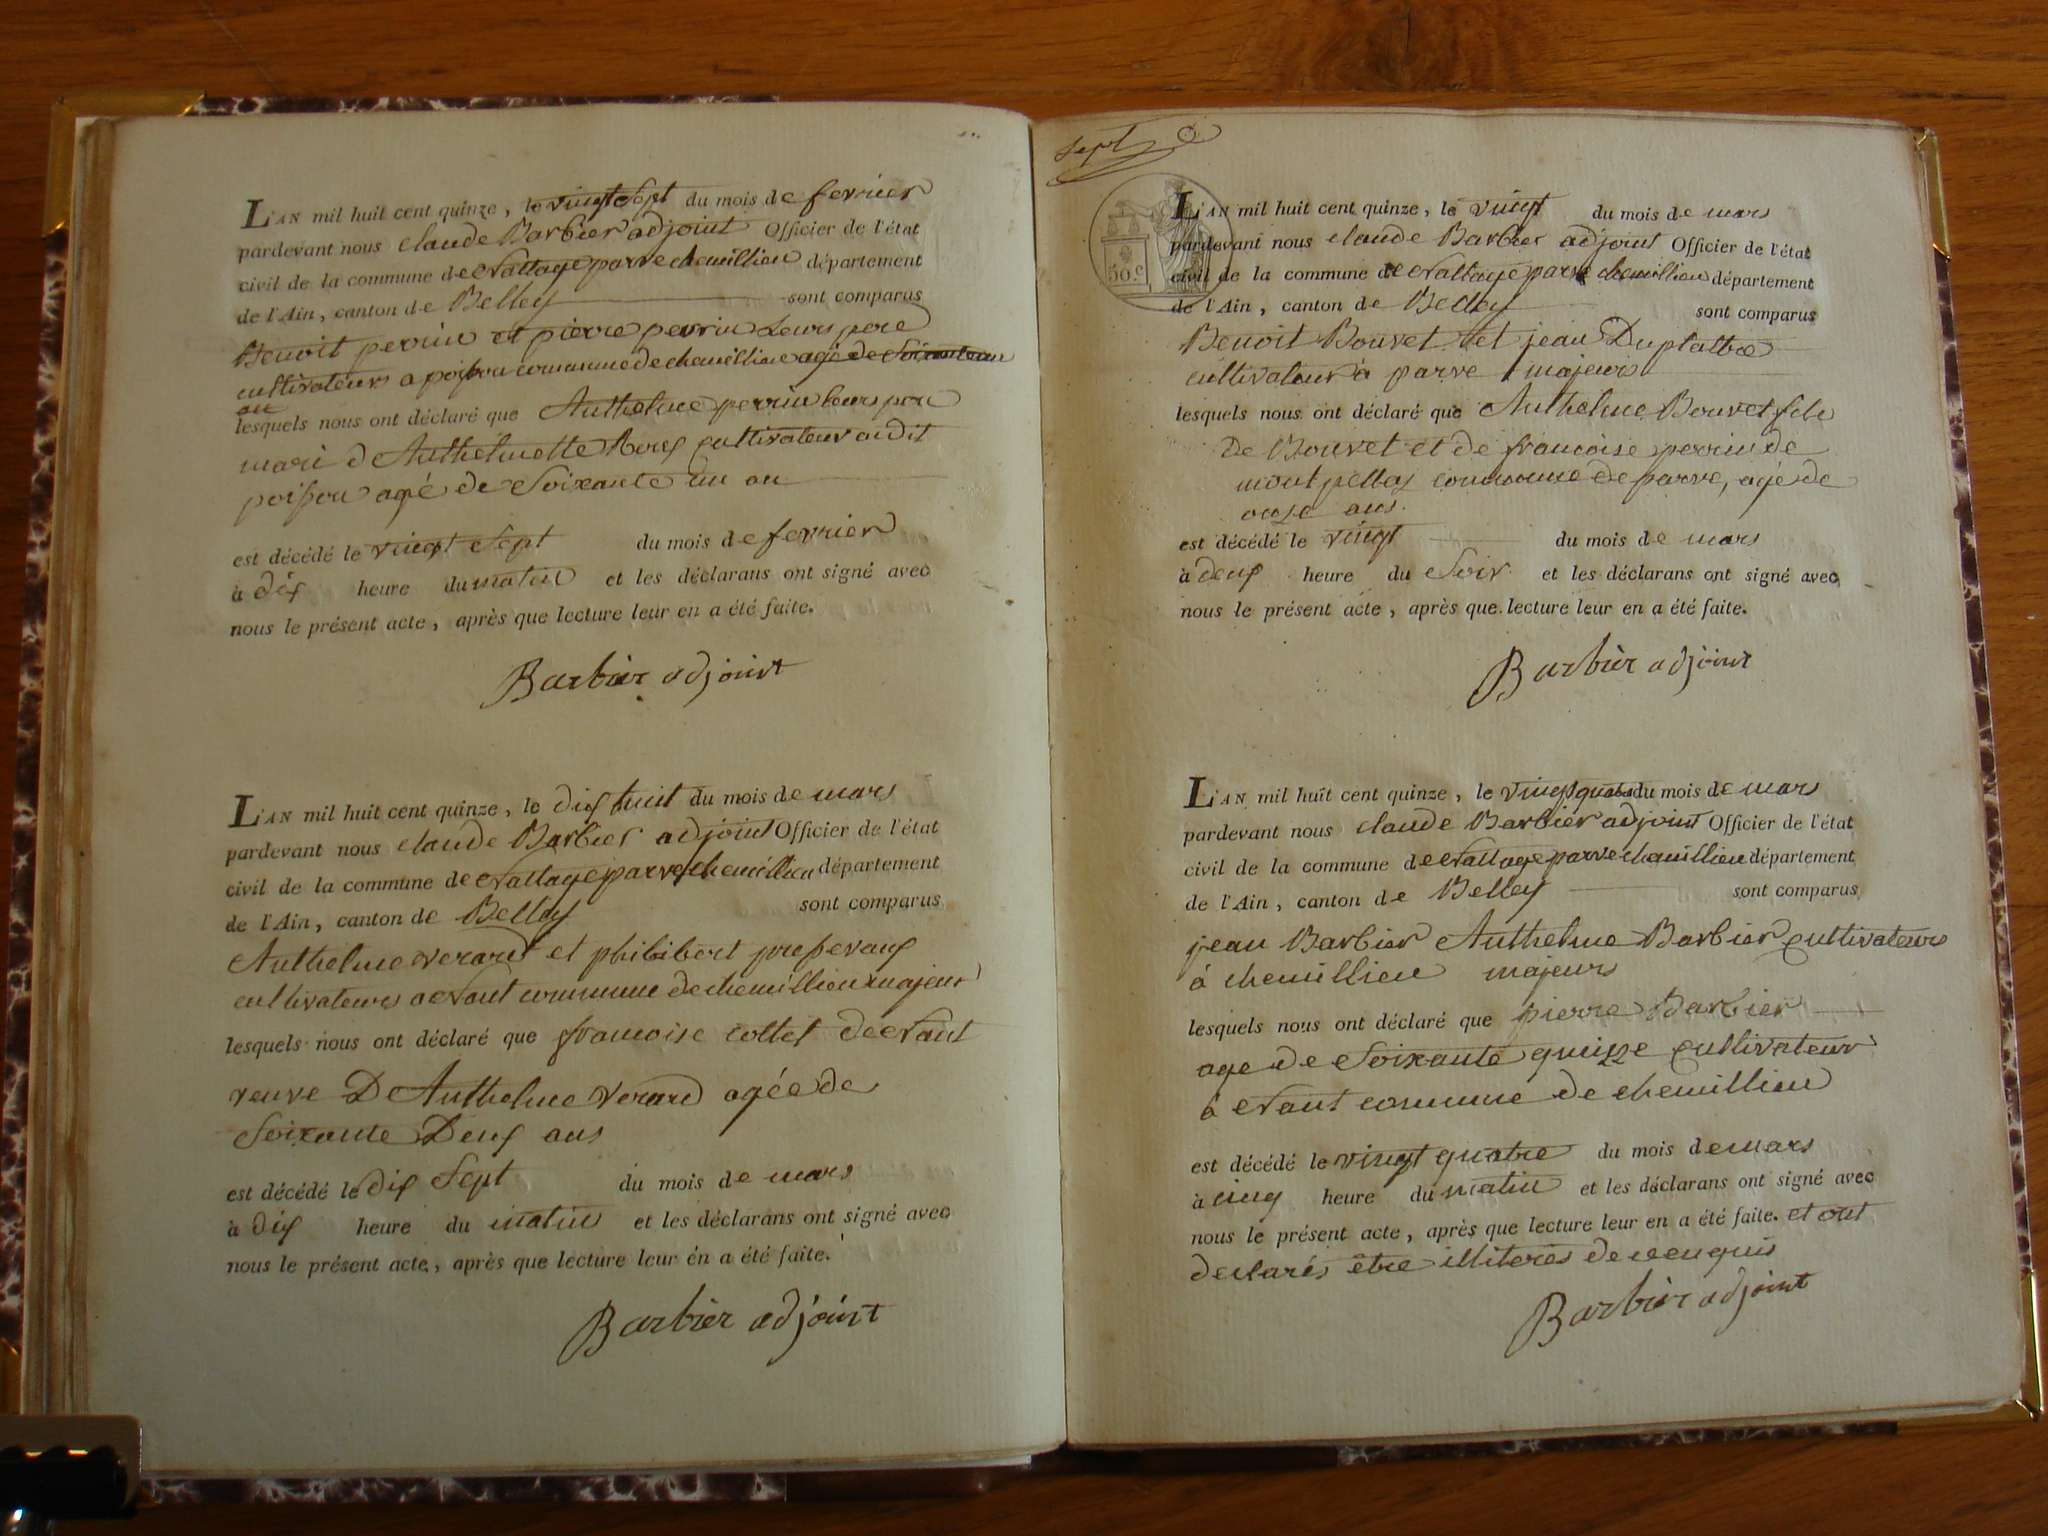 L'AN mil huit cent quinze, le vingt sept du mois de fevrier
pardevant nous claude Barbier adjoint Officier de l'état
civil de la commune de parve chemillieu département
de l'Ain, canton de Belley sont comparus
Benoit perrin et pierre perrin Leurs pere
cultivateurs a poisson commune de chemillieu agé de Soixante un
an
lesquels nous ont déclaré que Anthelme perrin leurs pere
mari d Anthelmette Roux cultivateur audit
poisson agé de Soixante un an
est décédé le vingt Sept du mois de fevrier
à dix heure du matin et les déclarans ont signé avec
nous le présent acte, après que lecture leur en a été faite.
Barbier adjoint
L'AN mil huit cent quinze, le dix huit du mois de mars
pardevant nous claude Barbier adjoint Officier de l'état
civil de la commune de parve chemillieu département
de l'Ain, canton de Belley sont comparus
Anthelme verard et philibert
cultivateurs a commune de chemillieu majeur
lesquels nous ont déclaré que francoise collet
veuve D Anthelme verard agée de
Soixante Deux ans
est décédé le dix Sept du mois de mars
à dix heure du matin et les déclarans ont signé avec
nous le présent acte, après que lecture leur en a été faite.
Barbier adjoint
Sept
50 c
L'AN mil huit cent quinze, le vingt du mois de mars
pardevant nous claude Barbier adjoint Officier de l'état
civil de la commune de parve chemillieu département
de l'Ain, canton de Belley sont comparus
Benoit Bouvet et jean Duplatre
cultivateur à parve majeurs
lesquels nous ont déclaré que Anthelme Bouvet fils
De Bouvet et de francoise perrin de
montpellaz commune de parve, agé de
onze ans.
est décédé le vingt du mois de mars
à deux heure du Soir et les déclarans ont signé avec
nous le présent acte, après que lecture leur en a été faite.
Barbier adjoint
L'AN mil huit cent quinze, le vingt quatre du mois de mars
pardevant nous claude Barbier adjoint Officier de l'état
civil de la commune de parve chemillieu département
de l'Ain, canton de Belley sont comparus
jean Barbier Anthelme Barbier cultivateurs
à chemillieu majeurs
lesquels nous ont déclaré que pierre Barbier
age de Soixante quinze cultivateur
à commune de chemillieu
est décédé le vingt quatre du mois de mars
à cinq heure du matin et les déclarans ont signé avec
nous le présent acte, après que lecture leur en a été faite. et ont
declarés être illiteres de ce enquis
Barbier adjoint